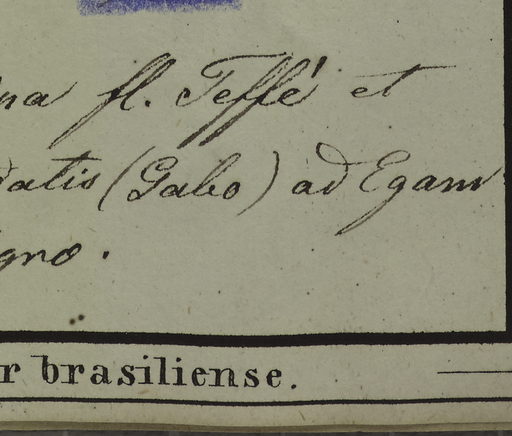 na fl. Teffé et
datis (Gabo) ad Egam
gno.
r brasiliense.